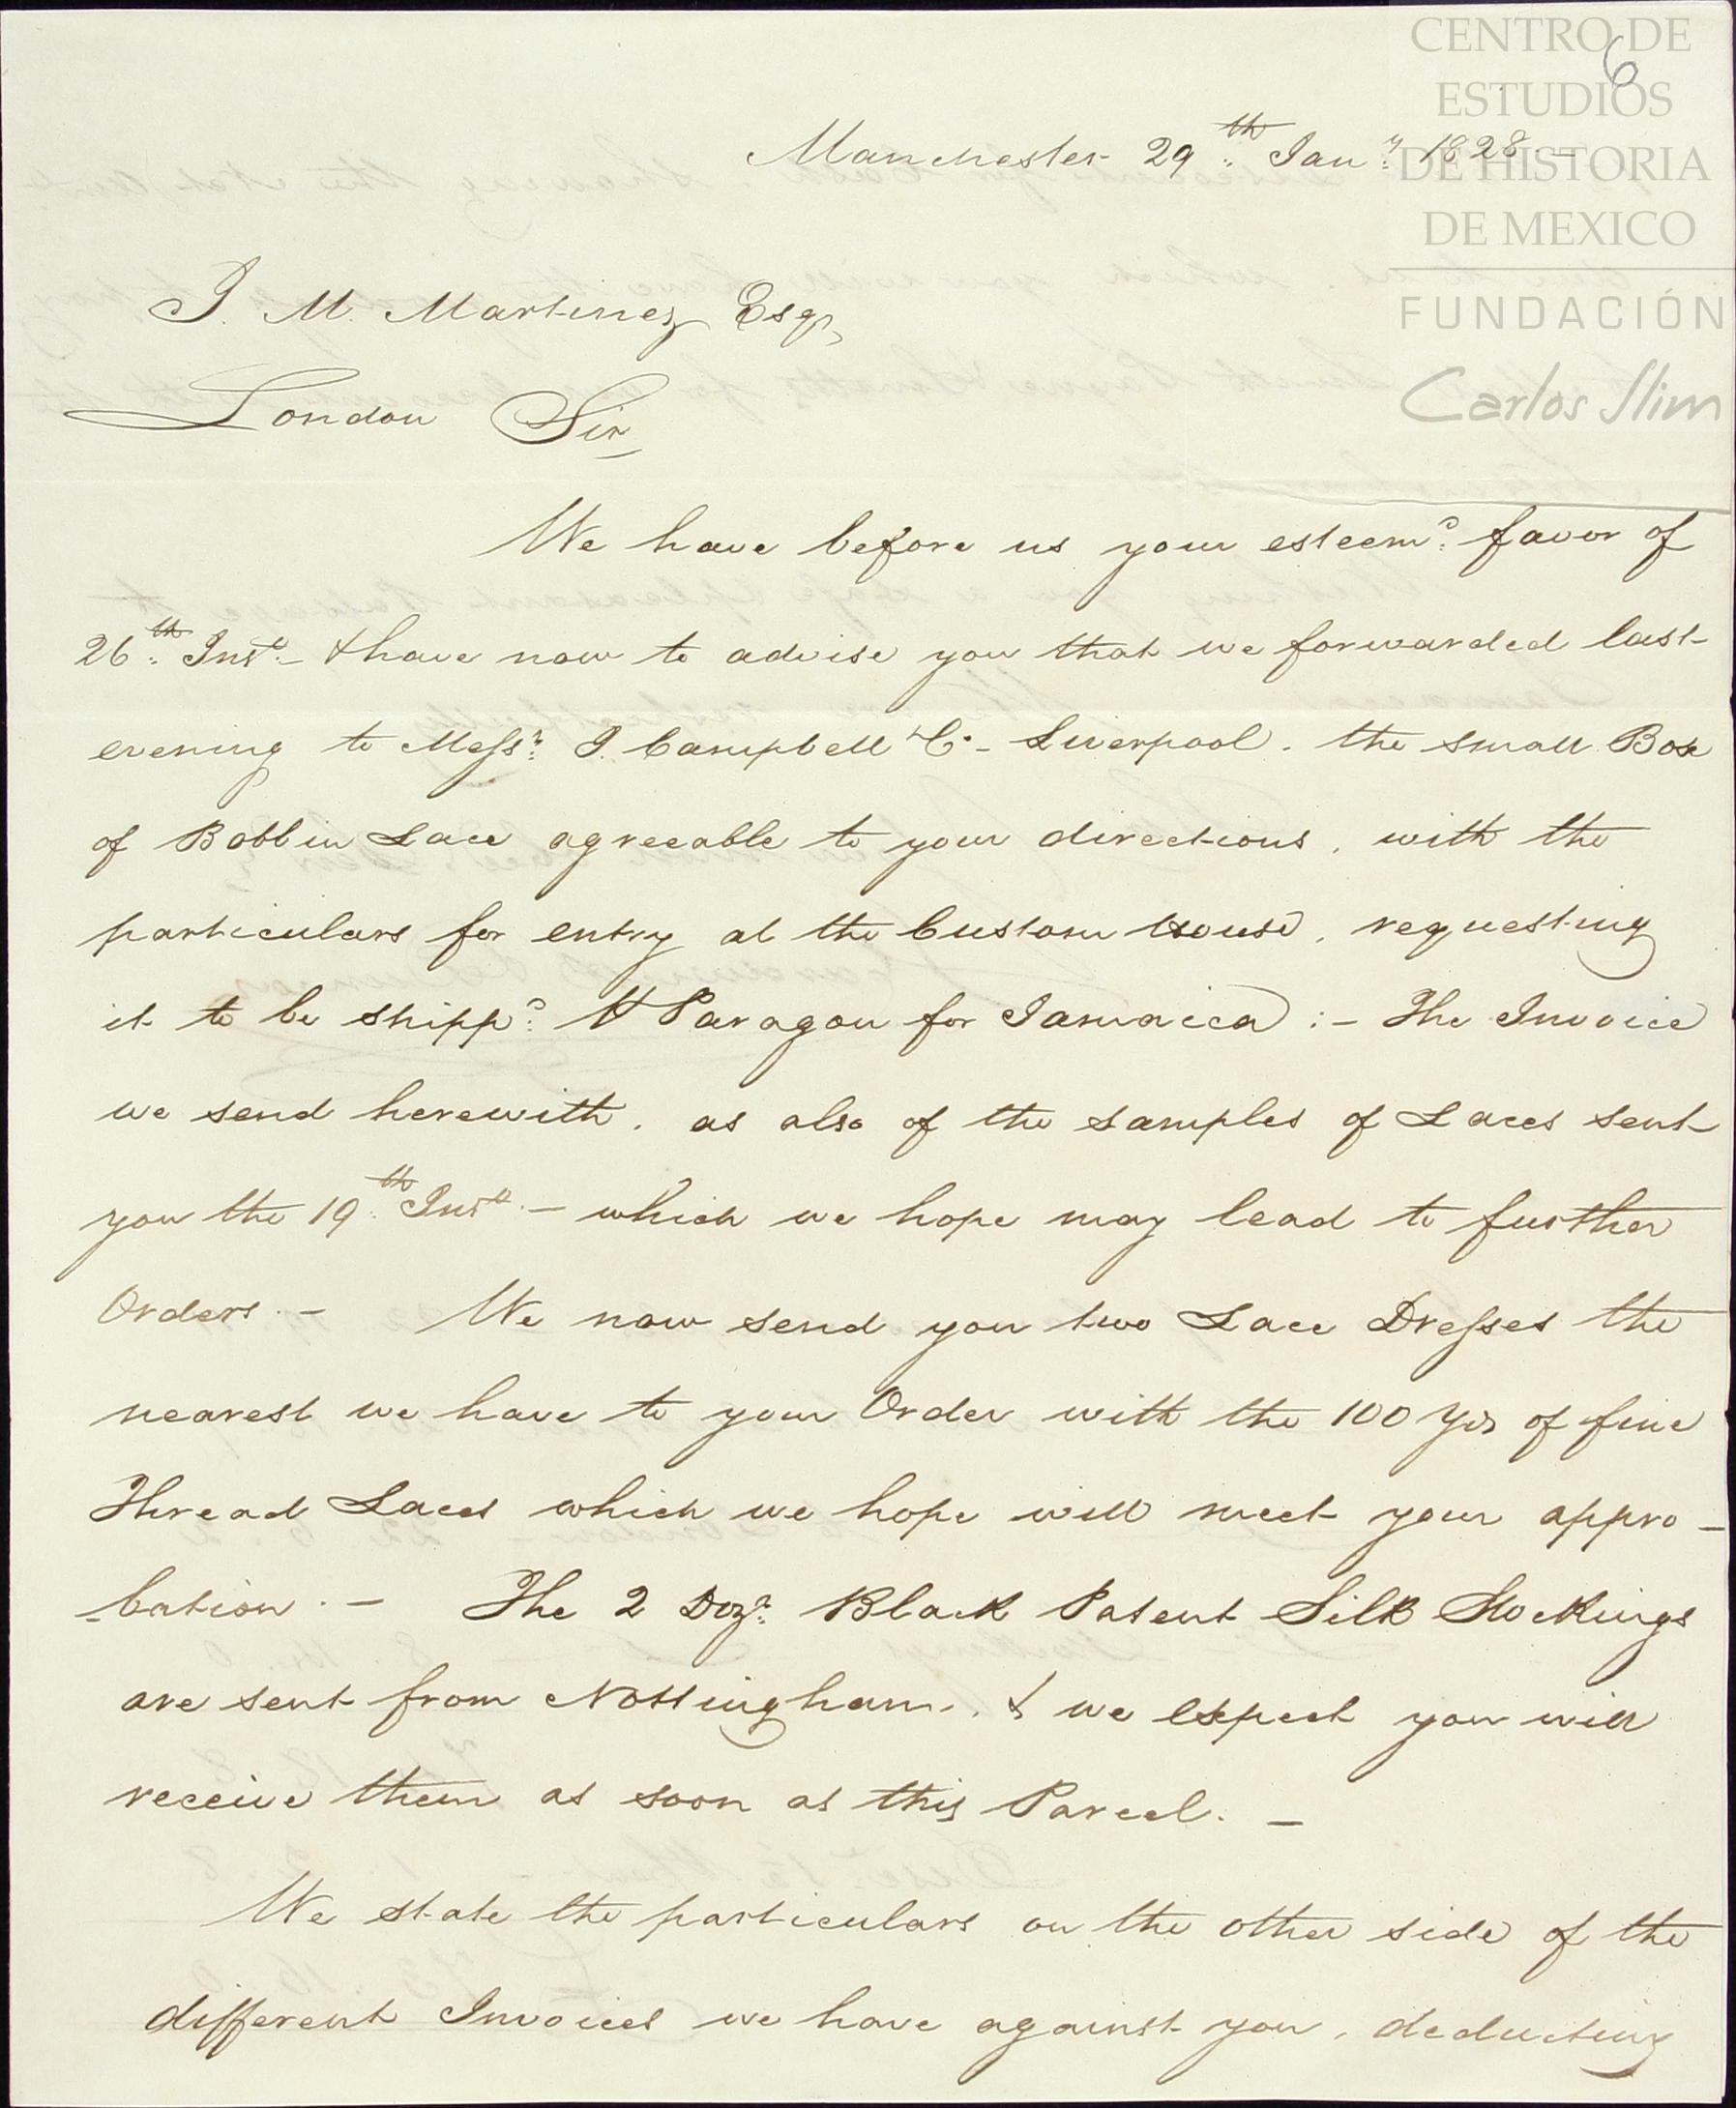 CENTRO DE
ESTUDIOS
DE HISTORIA
DE MEXICO
FUNDACIÓN
Carlos Slim
6
Manchester 29th Jany 1828 –
J. M. Martinez Esqr
London Sir
We have before us your esteemd favor of
26th Inst – & have now to advise you that we forwarded last
evening to Messrs J. Campbell & Co – Liverpool. the small Box
of Bobbin Lace agreeable to your directions, with the
particulars for entry at the Custom House, requesting
it to be shippd ⅌ Paragon for Jamaica :– The Invoice
we send herewith, as also of the samples of Laces sent
you the 19th Inst – which we hope may lead to further
Orders. – We now send you two Lace Dresses the
nearest we have to your Order with the 100 Yds of fine
Thread Laces which we hope will meet your appro –
-bation. – The 2 Dozn Black Patent Silk Stockings
are sent from Nottingham, & we expect you will
receive them as soon as this Parcel. –
We state the particulars on the other side of the
different Invoices we have against you, deducting